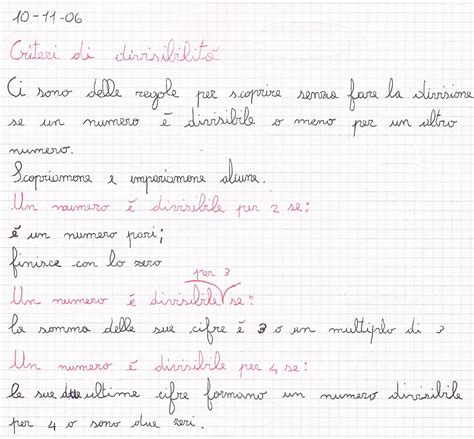 10-11-06
Criteri di divisibilità
Ci sono delle regole per scoprire senza fare la divisione
se un numero è divisibile o meno per un altro
numero.
Scopriamone e impariamone alcune.
Un numero è divisibile per 2 se:
é un numero pari;
finisce con lo zero
per 3
Un numero è divisibile se:
la somma delle sue cifre è 3 o un multiplo di 3
Un numero è divisibile per 4 se:
le sue due ultime cifre formano un numero divisibile
per 4 o sono due zeri.